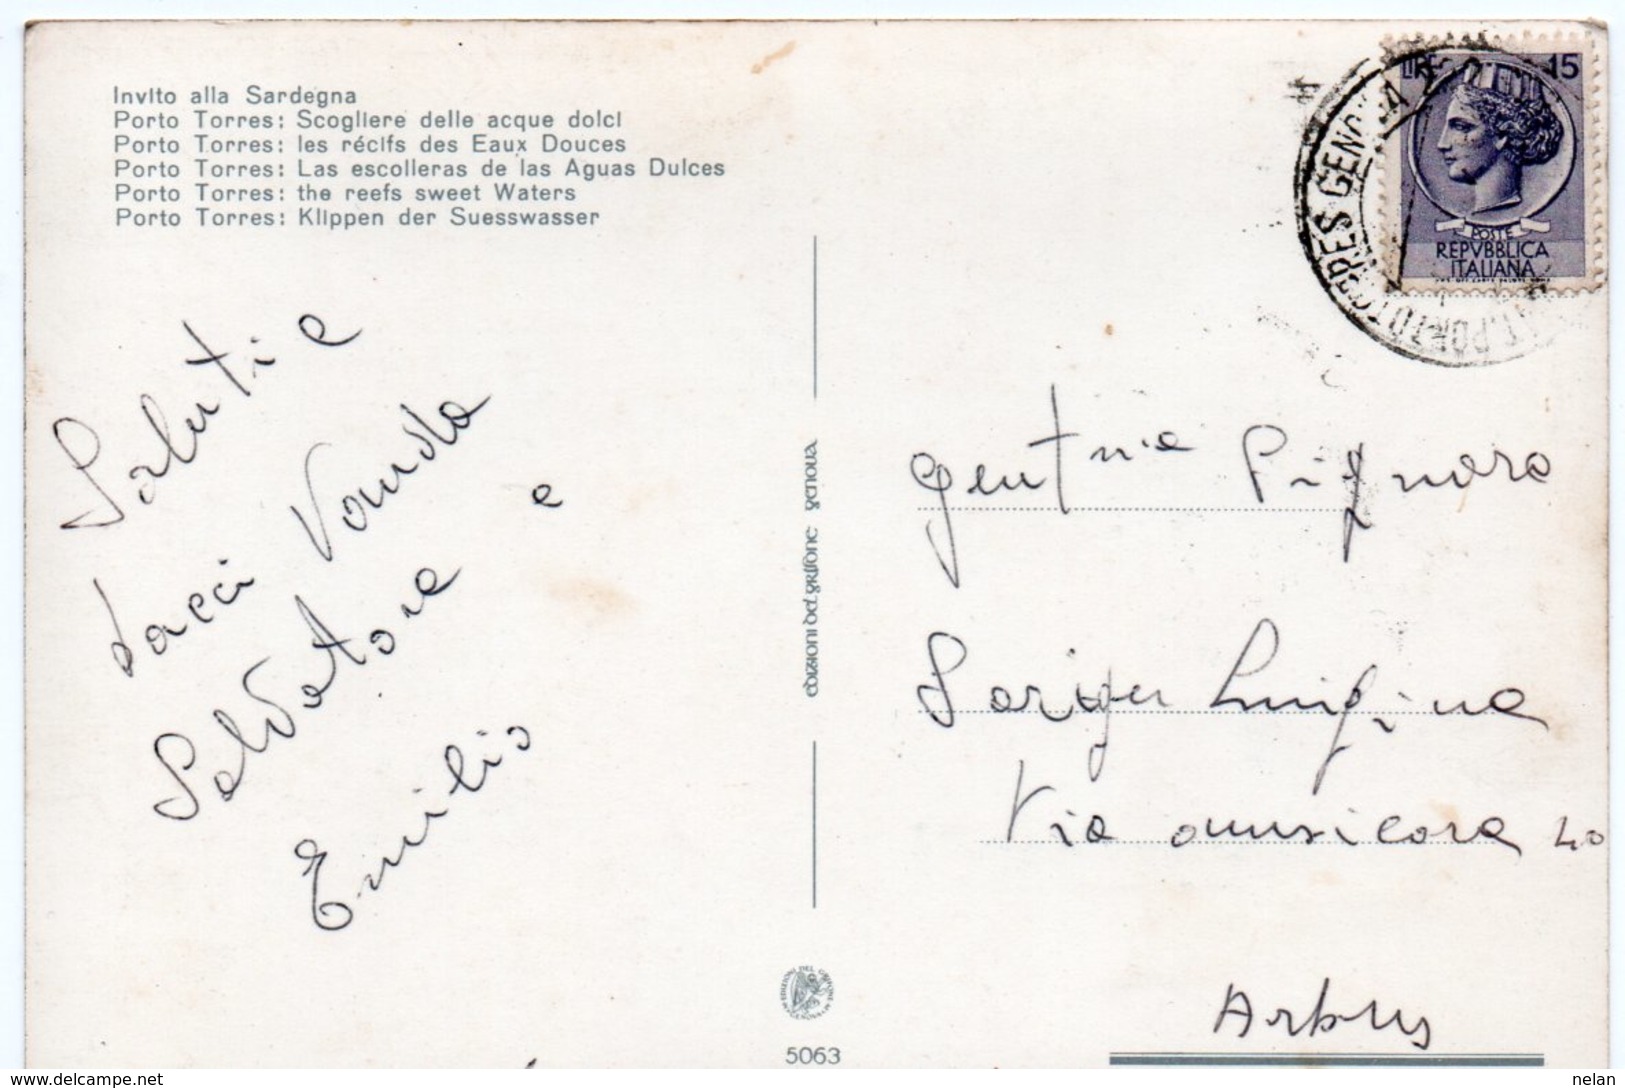 Invito alla Sardegna
Porto Torres: Scogliere delle acque dolci
Porto Torres: les récifs des Eaux Douces
Porto Torres: Las escolleras de las Aguas Dulces
Porto Torres: the reefs sweet Waters
Porto Torres: Klippen der Suesswasser
Saluti e
bacci Vanda
Salvatore e
Emilio
edizioni del grifone genova
EDIZIONI DEL GRIFONE
GENOVA
5063
LIRE 15
POSTE
REPVBBLICA
ITALIANA
PORTO TORRES GENOVA
Gent
Luigina
Via amsicora 40
Arbus
delcampe.net
nelan